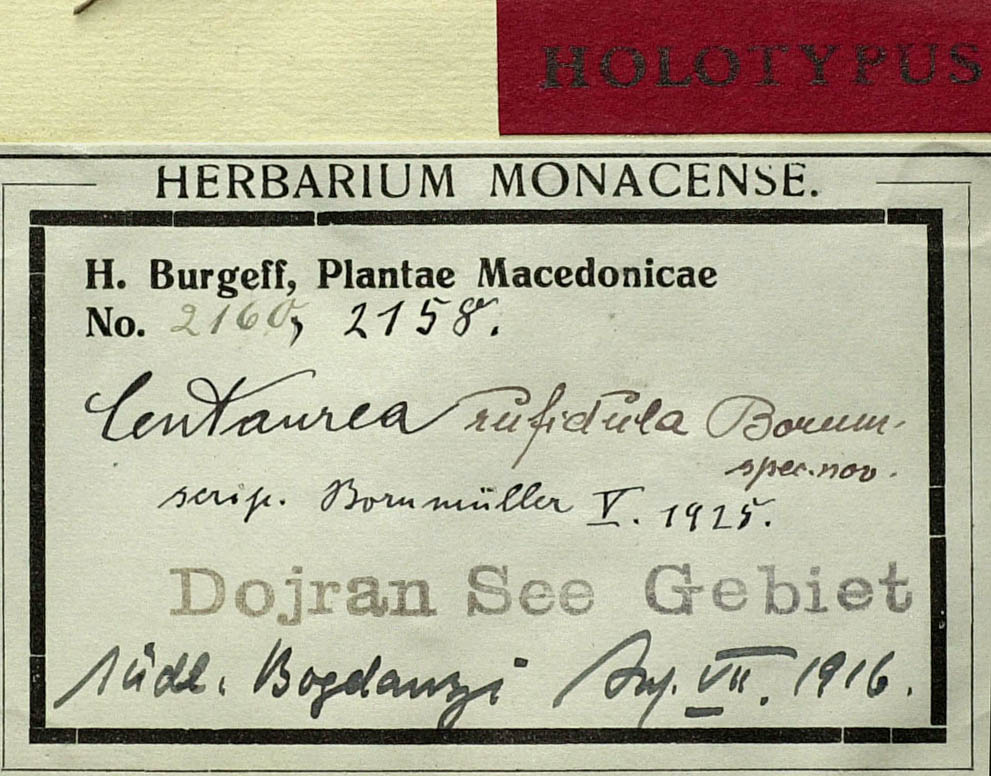 HOLOTYPUS
HERBARIUM MONACENSE.
H. Burgeff, Plantae Macedonicae
No. 2160, 2158.
Centaurea rufidula Bornm.
spec. nov.
scrip. Bornmüller V. 1925.
Dojran See Gebiet
südl. Bogdanzi Anf. VII. 1916.